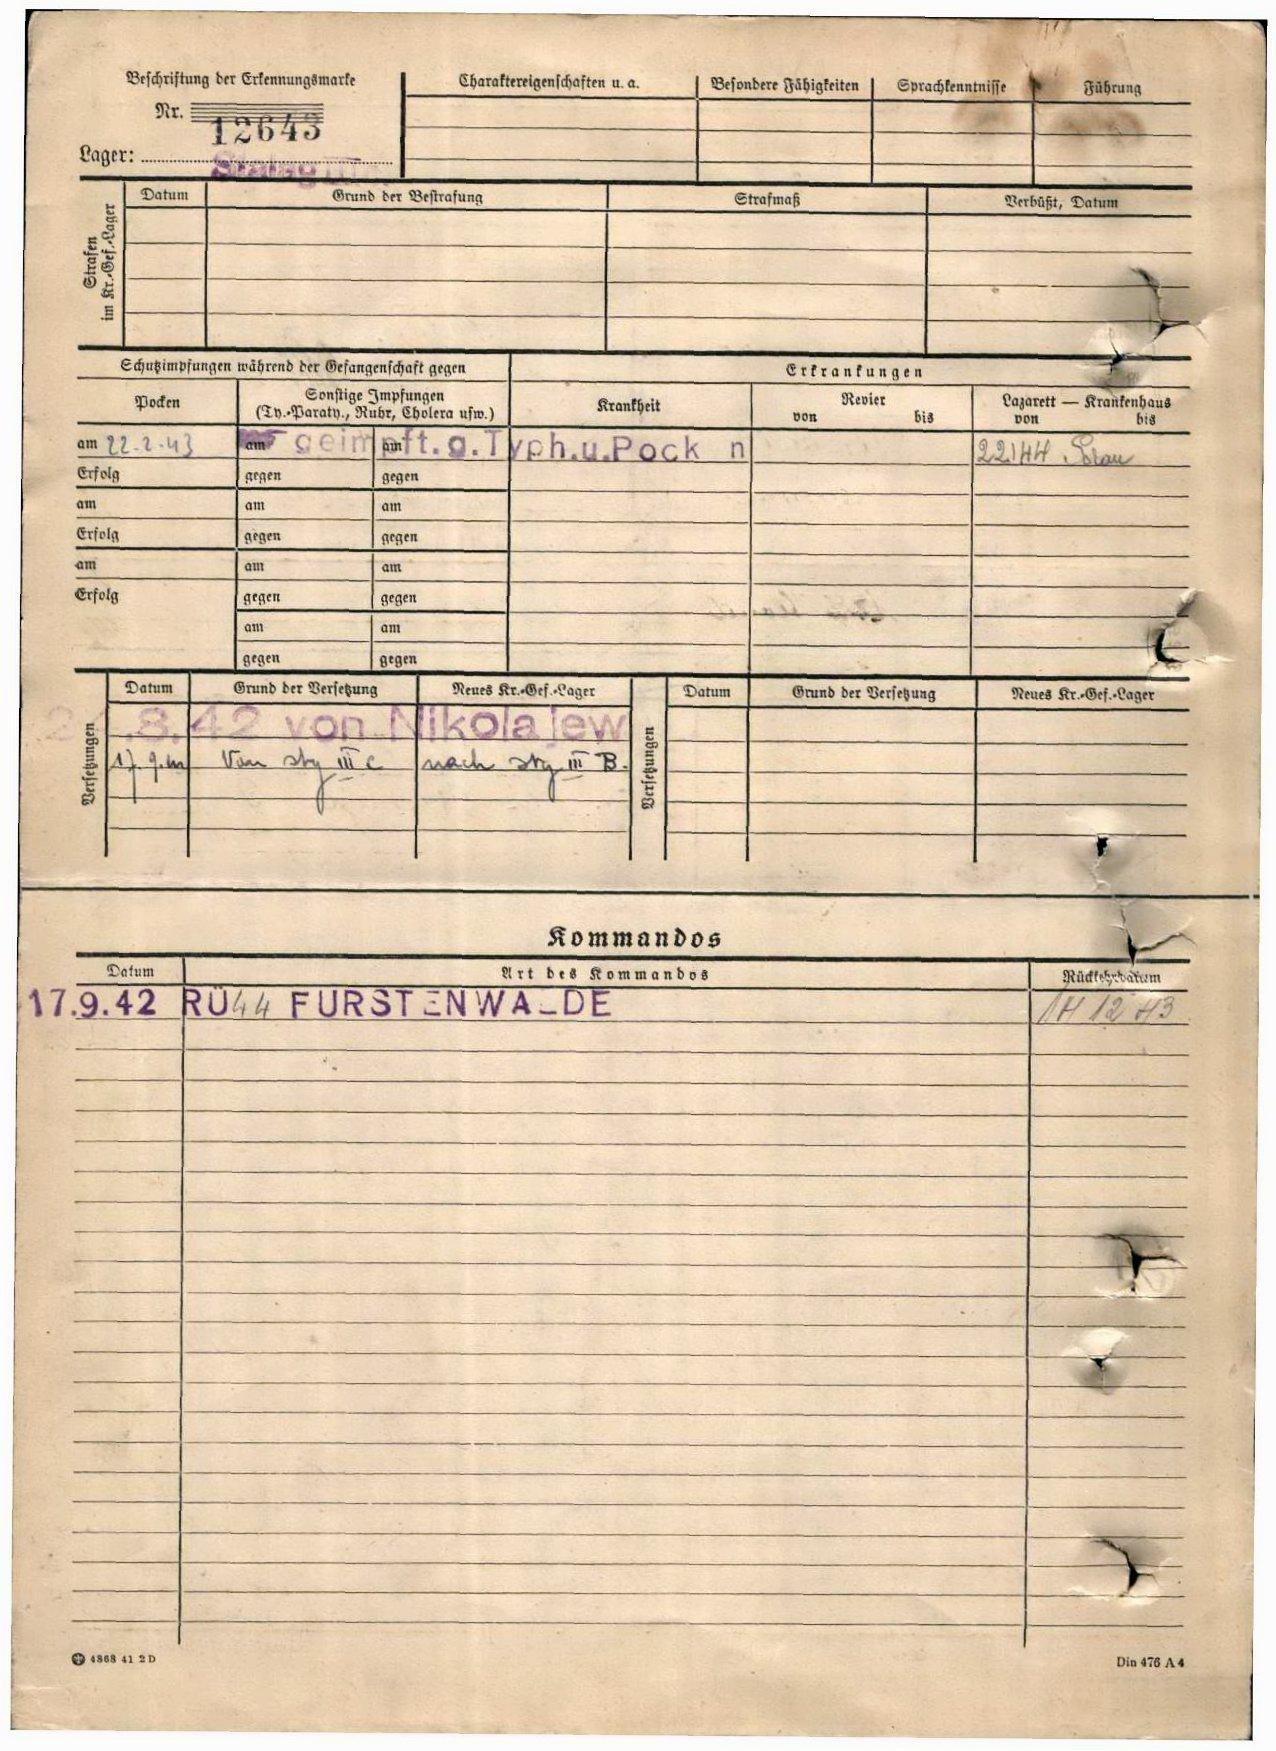 Beschriftung der Erkennungsmarke
Nr. 12643
Lager: Stalag III
Charaktereigenschaften u. a.
Besondere Fähigkeiten
Sprachkenntnisse
Führung
Strafen im Kr.-Gef.-Lager
Datum
Grund der Bestrafung
Strafmaß
Verbüßt, Datum
Schutzimpfungen während der Gefangenschaft gegen
Erkrankungen
Pocken
Sonstige Impfungen
(Ty.-Paraty., Ruhr, Cholera usw.)
Krankheit
Revier
von bis
Lazarett — Krankenhaus
von bis
am 22.2.43 am geimpft.g.Typh.u.Pock n am
Erfolg gegen gegen
am am am
Erfolg gegen gegen
am am am
Erfolg gegen gegen
am am
gegen gegen
Versetzungen
Datum Grund der Versetzung Neues Kr.-Gef.-Lager
.8.42 von Nikolajew
17.9.42 Von stg III C nach stg III B.
Versetzungen
Datum Grund der Versetzung Neues Kr.-Gef.-Lager
Kommandos
Datum Art des Kommandos Rückkehrdatum
17.9.42 RÜ44 FÜRSTENWALDE 14 12 43
4868 41 2D
Din 476 A4